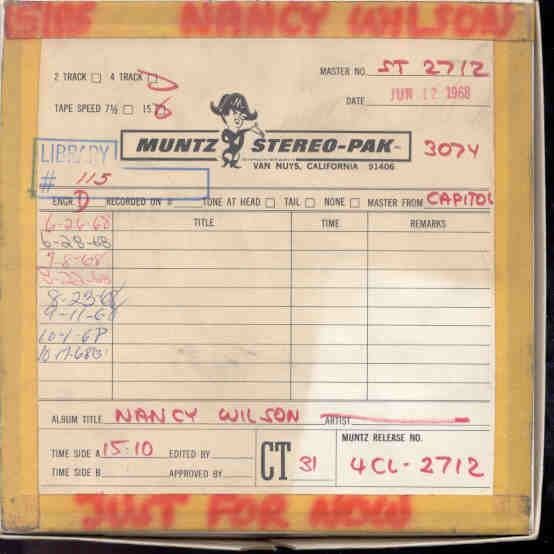 15:10 NANCY WILSON
2 TRACK 4 TRACK
MASTER NO. ST 2712
DATE JUN 12 1968
TAPE SPEED 7½ 15
6
MUNTZ STEREO-PAK
VAN NUYS, CALIFORNIA 91406
3074
LIBRARY
# 115
ENGR. D RECORDED ON # TONE AT HEAD TAIL NONE MASTER FROM CAPITOL
TITLE TIME REMARKS
6-26-68
6-28-68
7-8-68
8-22-68
8-23-68
9-11-68
10-1-68
10-17-68
ALBUM TITLE NANCY WILSON ARTIST
TIME SIDE A 15:10 EDITED BY
TIME SIDE B APPROVED BY
CT 31
MUNTZ RELEASE NO.
4CL-2712
JUST FOR NOW